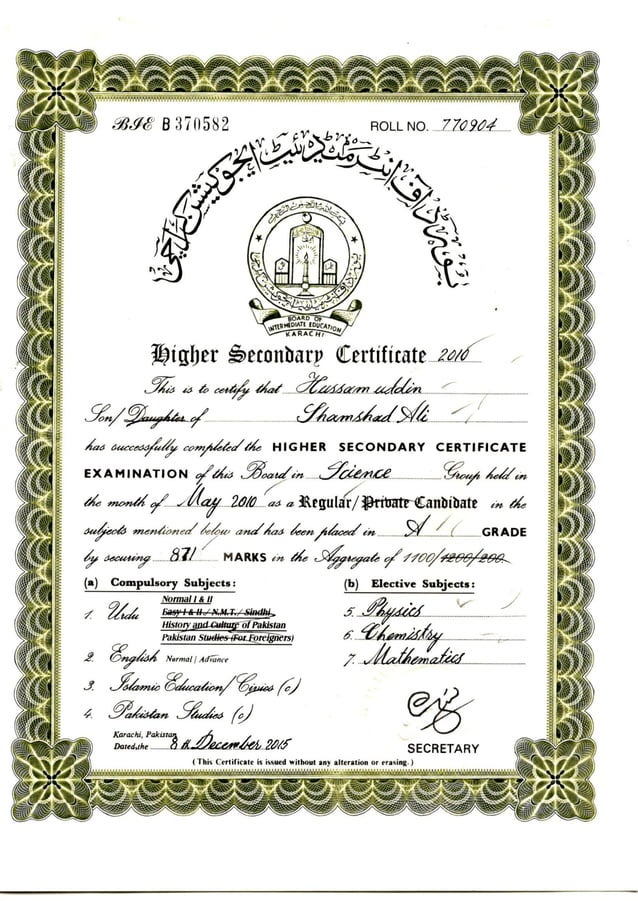 BIE B 370582
ROLL NO. 770904
بورڈ آف انٹرمیڈیٹ ایجوکیشن کراچی
BOARD OF
INTERMEDIATE EDUCATION
KARACHI
Higher Secondary Certificate 2010
This is to certify that Hussam uddin
Son/ Daughter of Shamshad Ali
has successfully completed the HIGHER SECONDARY CERTIFICATE
EXAMINATION of this Board in Science Group held in
the month of May 2010 as a Regular/Private Candidate in the
subjects mentioned below and has been placed in A GRADE
by securing 871 MARKS in the Aggregate of 1100/1200/200.
(a) Compulsory Subjects:
Normal I & II
1. Urdu Easy I & II./N.M.T./ Sindhi,
History and Culture of Pakistan
Pakistan Studies (For Foreigners)
2. English Normal | Advance
3. Islamic Education/ Civics (c)
4. Pakistan Studies (c)
(b) Elective Subjects:
5. Physics
6. Chemistry
7. Mathematics
Karachi, Pakistan
Dated, the 8th December 2015
SECRETARY
(This Certificate is issued without any alteration or erasing.)